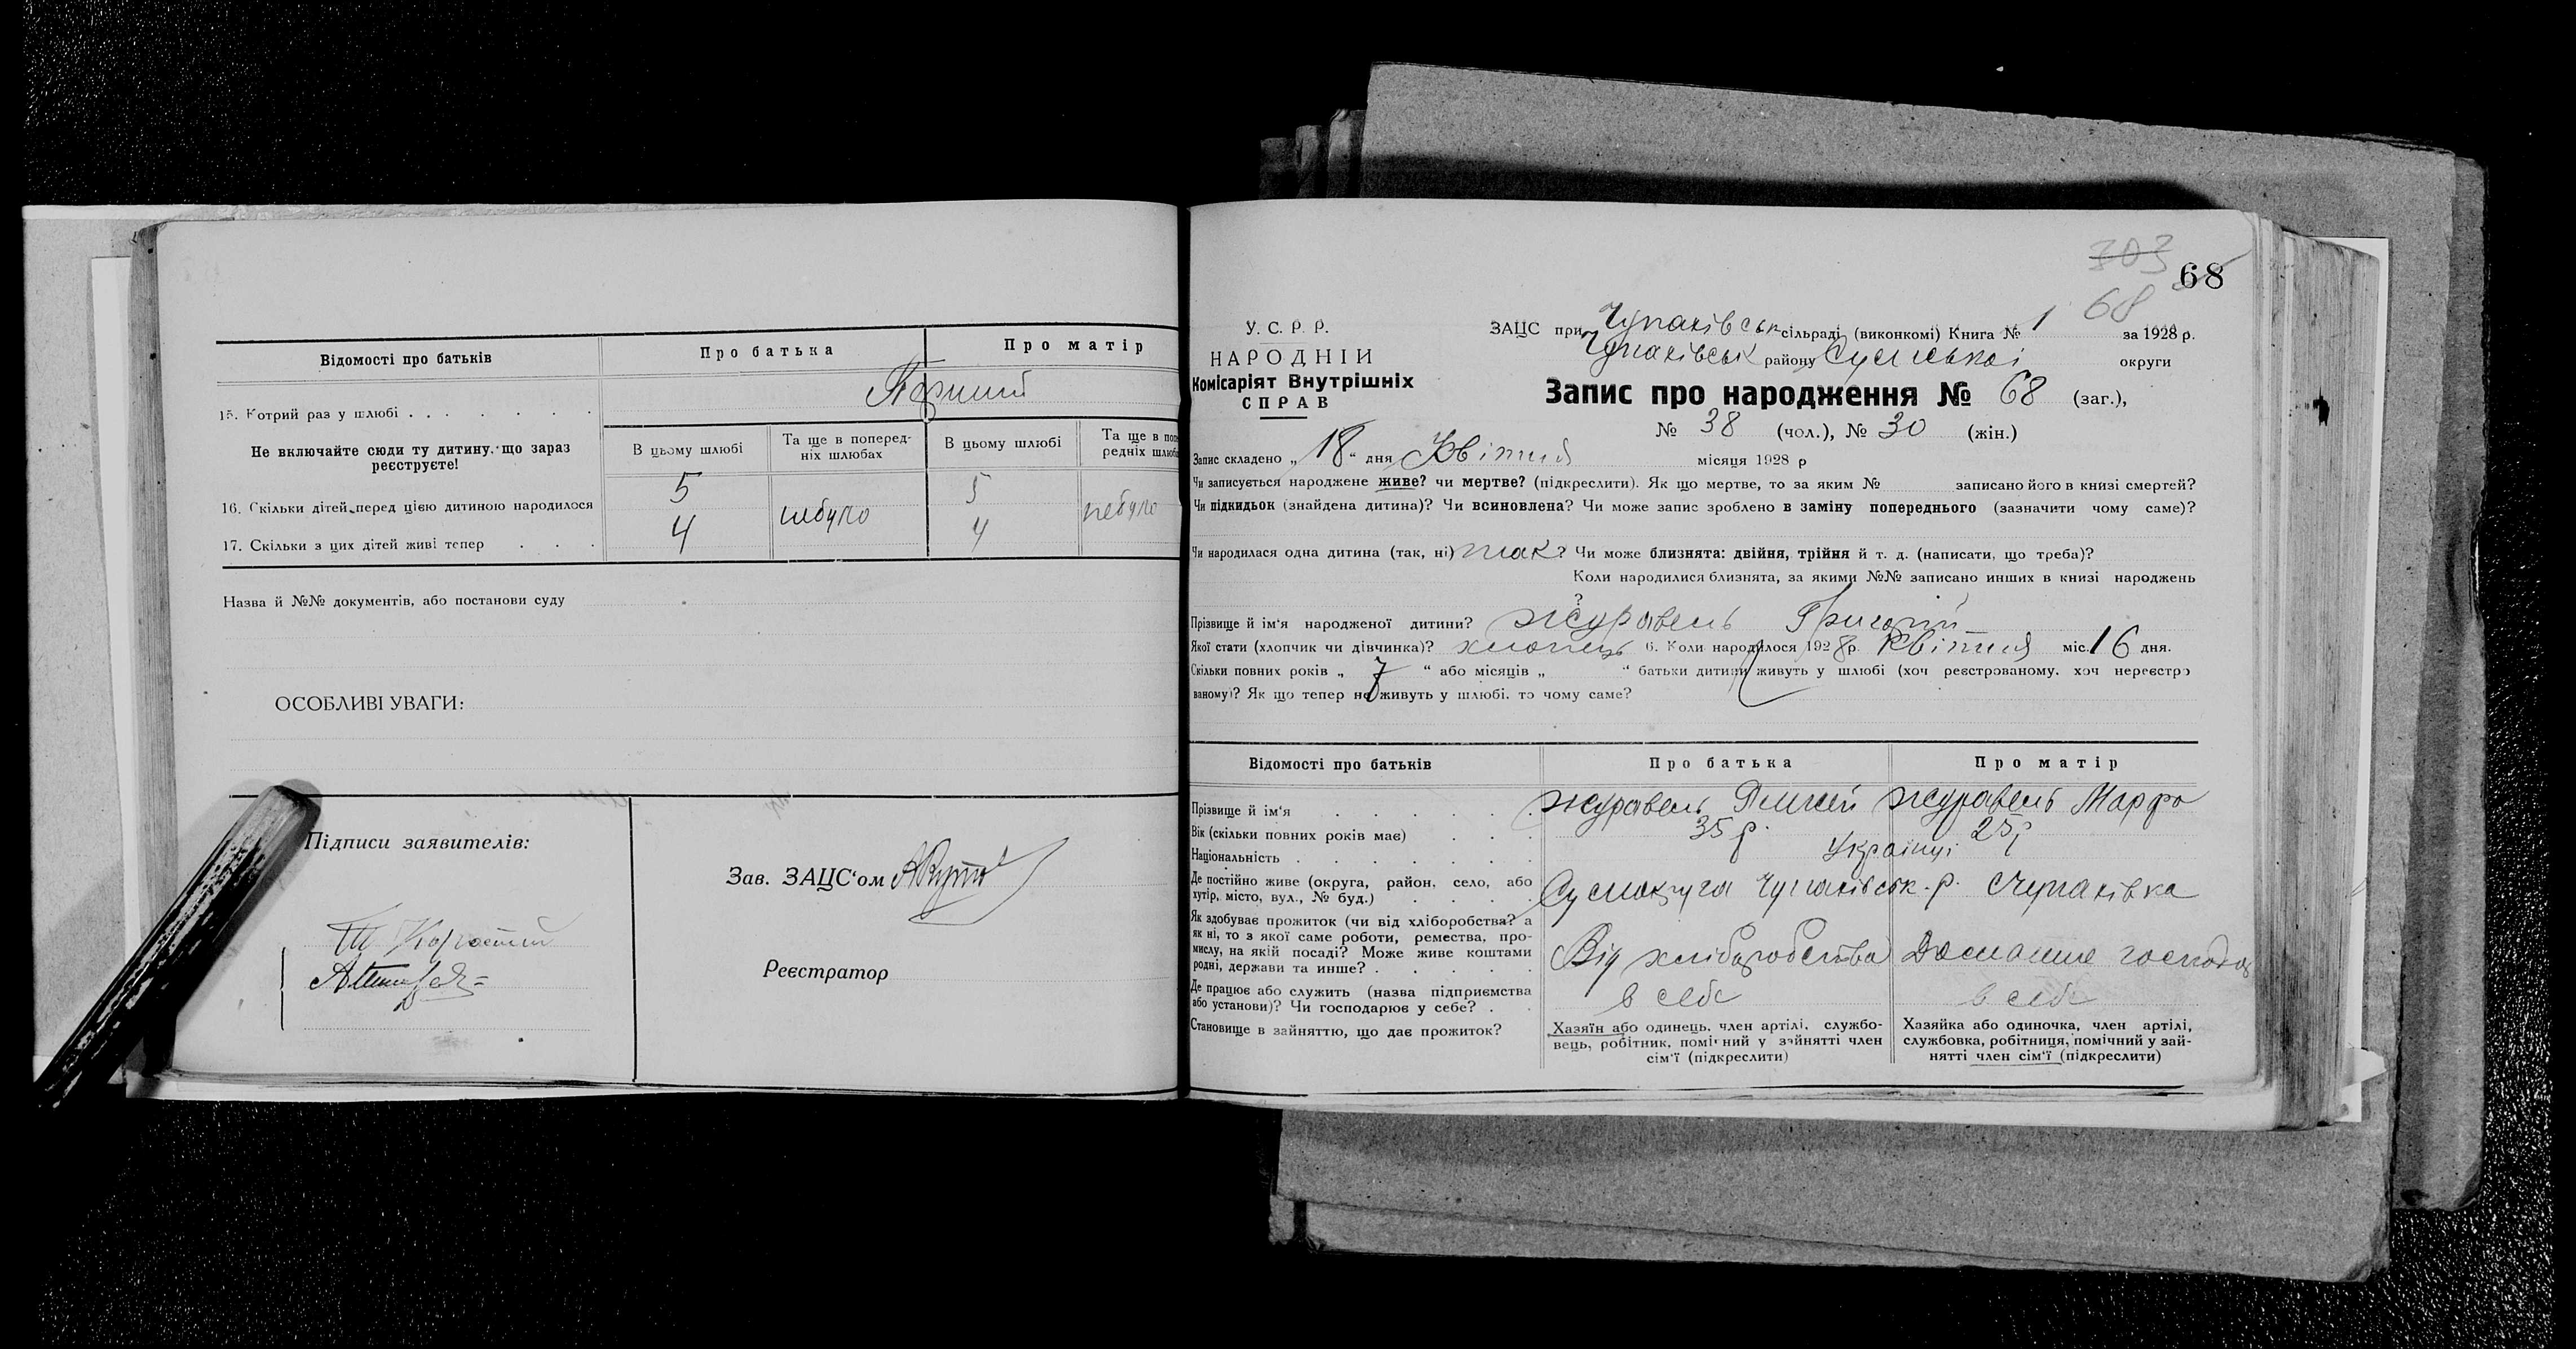 Відомості про батьків
Про батька
Про матір
15. Котрий раз у шлюбі . . . . . . .
Перший
Не включайте сюди ту дитину, що зараз реєструєте!
В цьому шлюбі
Та ще в поперед-
ніх шлюбах
В цьому шлюбі
Та ще в поп
редніх шлюб
16. Скільки дітей перед цією дитиною народилося
5
небуло
5
небуло
17. Скільки з цих дітей живі тепер . . .
4
4
Назва й №№ документів, або постанови суду
ОСОБЛИВІ УВАГИ:
Підписи заявителів:
Зав. ЗАЦС'ом
Реєстратор
303
68
68
У. С. Р. Р.
НАРОДНІЙ
Комісаріят Внутрішніх
СПРАВ
ЗАЦС при Чупахівськ сільраді (виконкомі) Книга № 1 за 1928 р.
Чупахівськ району Сумської округи
Запис про народження № 68 (заг.),
№ 38 (чол.), № 30 (жін.)
Запис складено „18“ дня Квітня місяця 1928 р
Чи записується народжене живе? чи мертве? (підкреслити). Як що мертве, то за яким № записано його в книзі смертей?
Чи підкидьок (знайдена дитина)? Чи всиновлена? Чи може запис зроблено в заміну попереднього (зазначити чому саме)?
Чи народилася одна дитина (так, ні) так? Чи може близнята: двійня, трійня й т. д. (написати, що треба)?
Коли народилися близнята, за якими №№ записано инших в книзі народжень
?
Прізвище й ім'я народженої дитини? Журавель Григорій
Якої стати (хлопчик чи дівчинка)? хлопець 6. Коли народилося 1928 р. Квітня міс. 16 дня.
Скільки повних років „ 7 “ або місяців „ “ батьки дитини живуть у шлюбі (хоч реєстрованому, хоч нереєстро
ваному)? Як що тепер не живуть у шлюбі, то чому саме?
Відомості про батьків
Про батька
Про матір
Прізвище й ім'я . . . . . .
Журавель
Журавель Марфа
Вік (скільки повних років має) . . .
35 р.
25 р
Національність . . . . . . .
Українці
Де постійно живе (округа, район, село, або
хутір, місто, вул., № буд.) . . . .
Сумокруга Чупахівськ. р. с Чупахівка
Як здобуває прожиток (чи від хліборобства? а
як ні, то з якої саме роботи, ремества, про-
мислу, на якій посаді? Може живе коштами
родні, держави та инше? . . . . .
Від хліборобства
Домашне господар
Де працює або служить (назва підприємства
або установи)? Чи господарює у себе? . .
в себе
в себе
Становище в зайняттю, що дає прожиток?
Хазяїн або одинець, член артілі, службо-
вець, робітник, помічний у зайнятті член
сім'ї (підкреслити)
Хазяйка або одиночка, член артілі,
службовка, робітниця, помічний у зай-
нятті член сім'ї (підкреслити)